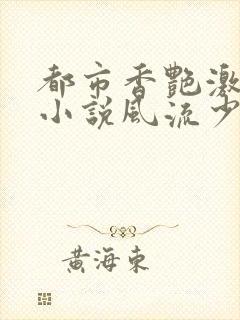 都市香艷激
小說風流少
黃海東